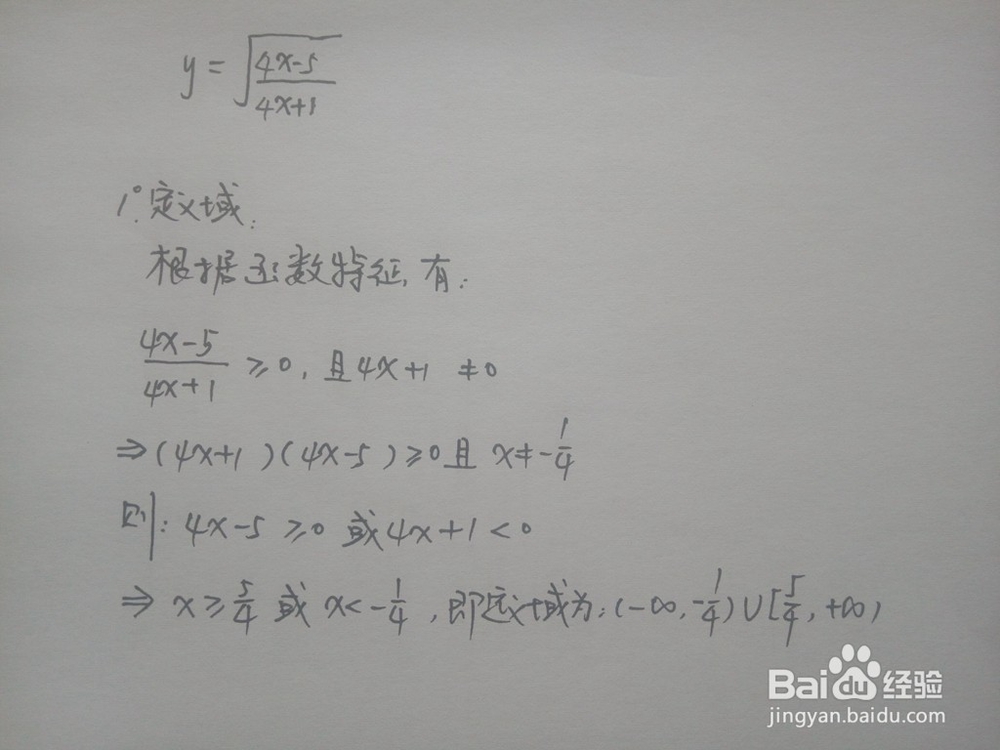 y = √((4x-5)/(4x+1))
1°.定义域:
根据函数特征,有:
(4x-5)/(4x+1) ≥0, 且4x+1 ≠0
⇒(4x+1)(4x-5)≥0且 x≠-1/4
则: 4x-5≥0 或4x+1<0
⇒ x≥5/4 或 x<-1/4, 即定义域为:(-∞,-1/4)∪[5/4,+∞)
Baidu经验
jingyan.baidu.com